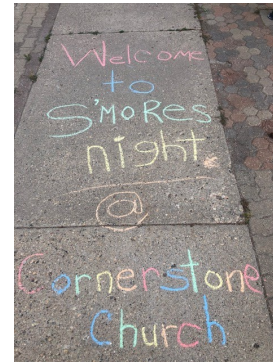 Welcome
to
S'MoRes
night
@
Cornerstone
Church